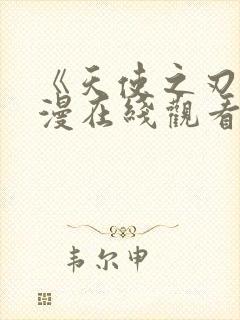 《天使之刃
漫在綫觀看
韦尔申